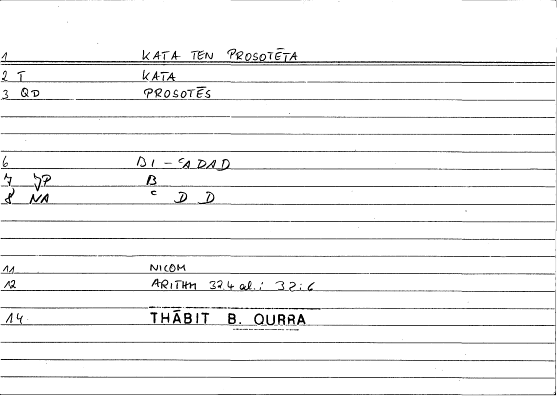 1 KATA TEN PROSOTĒTA
2 T KATA
3 QD PROSOTĒS
6 BI-ʿADAD
7 JP B
8 NA ʿ D D
11 NICOM
12 ARITHM 32.4 al.: 32:6
14 THĀBIT B. QURRA